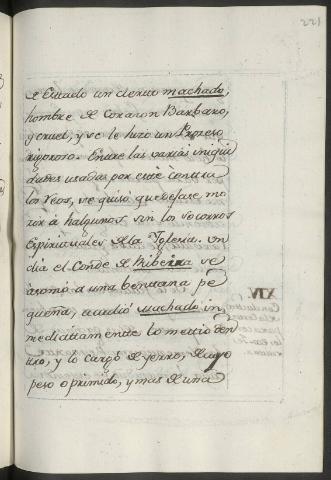 221
de Estado un clerigo machado,
hombre de corazon Barbaro,
y cruel, y se le hizo un Proceso
rigoroso. Entre las varias iniqui
dades usadas por este contra
los Reos, se quisó quedejase mo
rir á halgunos sin los socorros
Espirituales de la Yglesia. Un
dia el Conde de Ribeira se
asomó a una bentana pe
queña, acudió Machado in
mediattamente lo mettio den
tro, y lo cargó de yerro, de cuyo
peso oprimido, y mas de una
XIV.